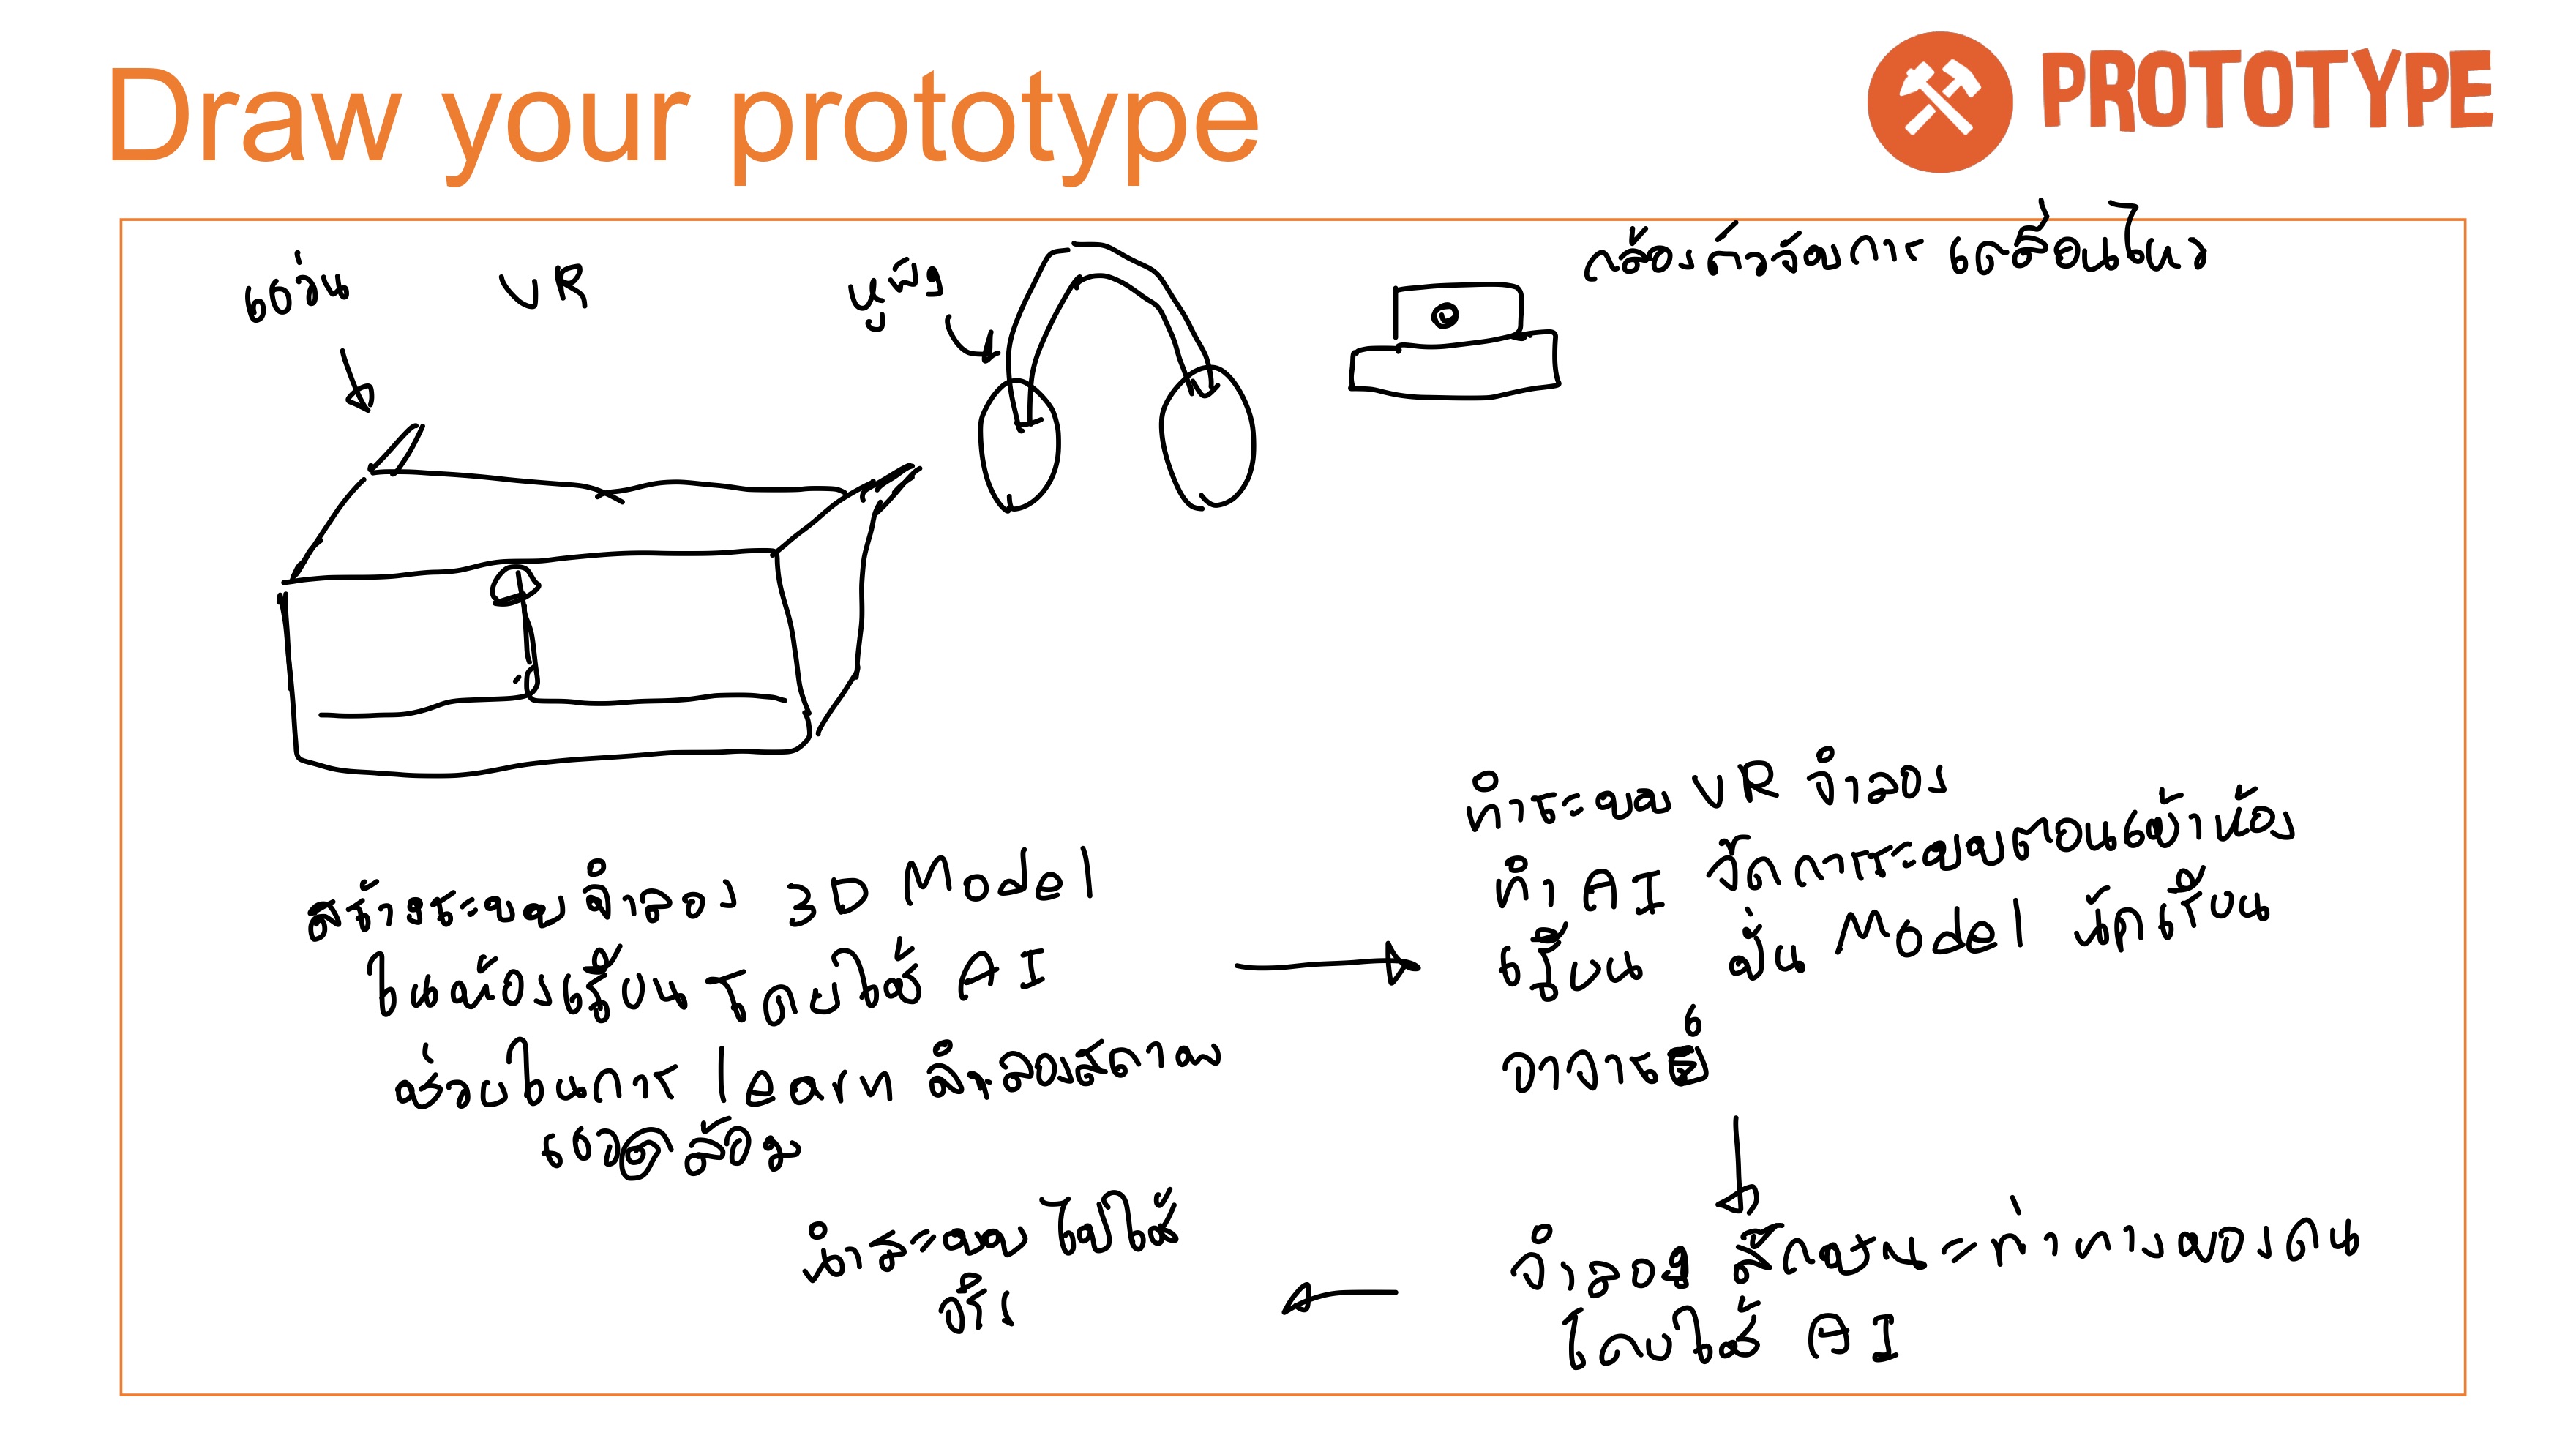 Draw your prototype
PROTOTYPE
แว่น VR
หูฟัง
กล้องตัวจับการ เคลื่อนไหว
สร้างระบบจำลอง 3D Model
ในห้องเรียน โดยใช้ AI
ช่วยในการ learn จำลองสถาพ
แวดล้อม
ทำระบบ VR จำลอง
ทำ AI จัดการระบบตอนเข้าห้อง
เรียน ปั้น Model นักเรียน
อาจารย์
จำลอง ลักษณะท่าทางของคน
โดยใช้ AI
นำระบบ ไปใช้
จริง